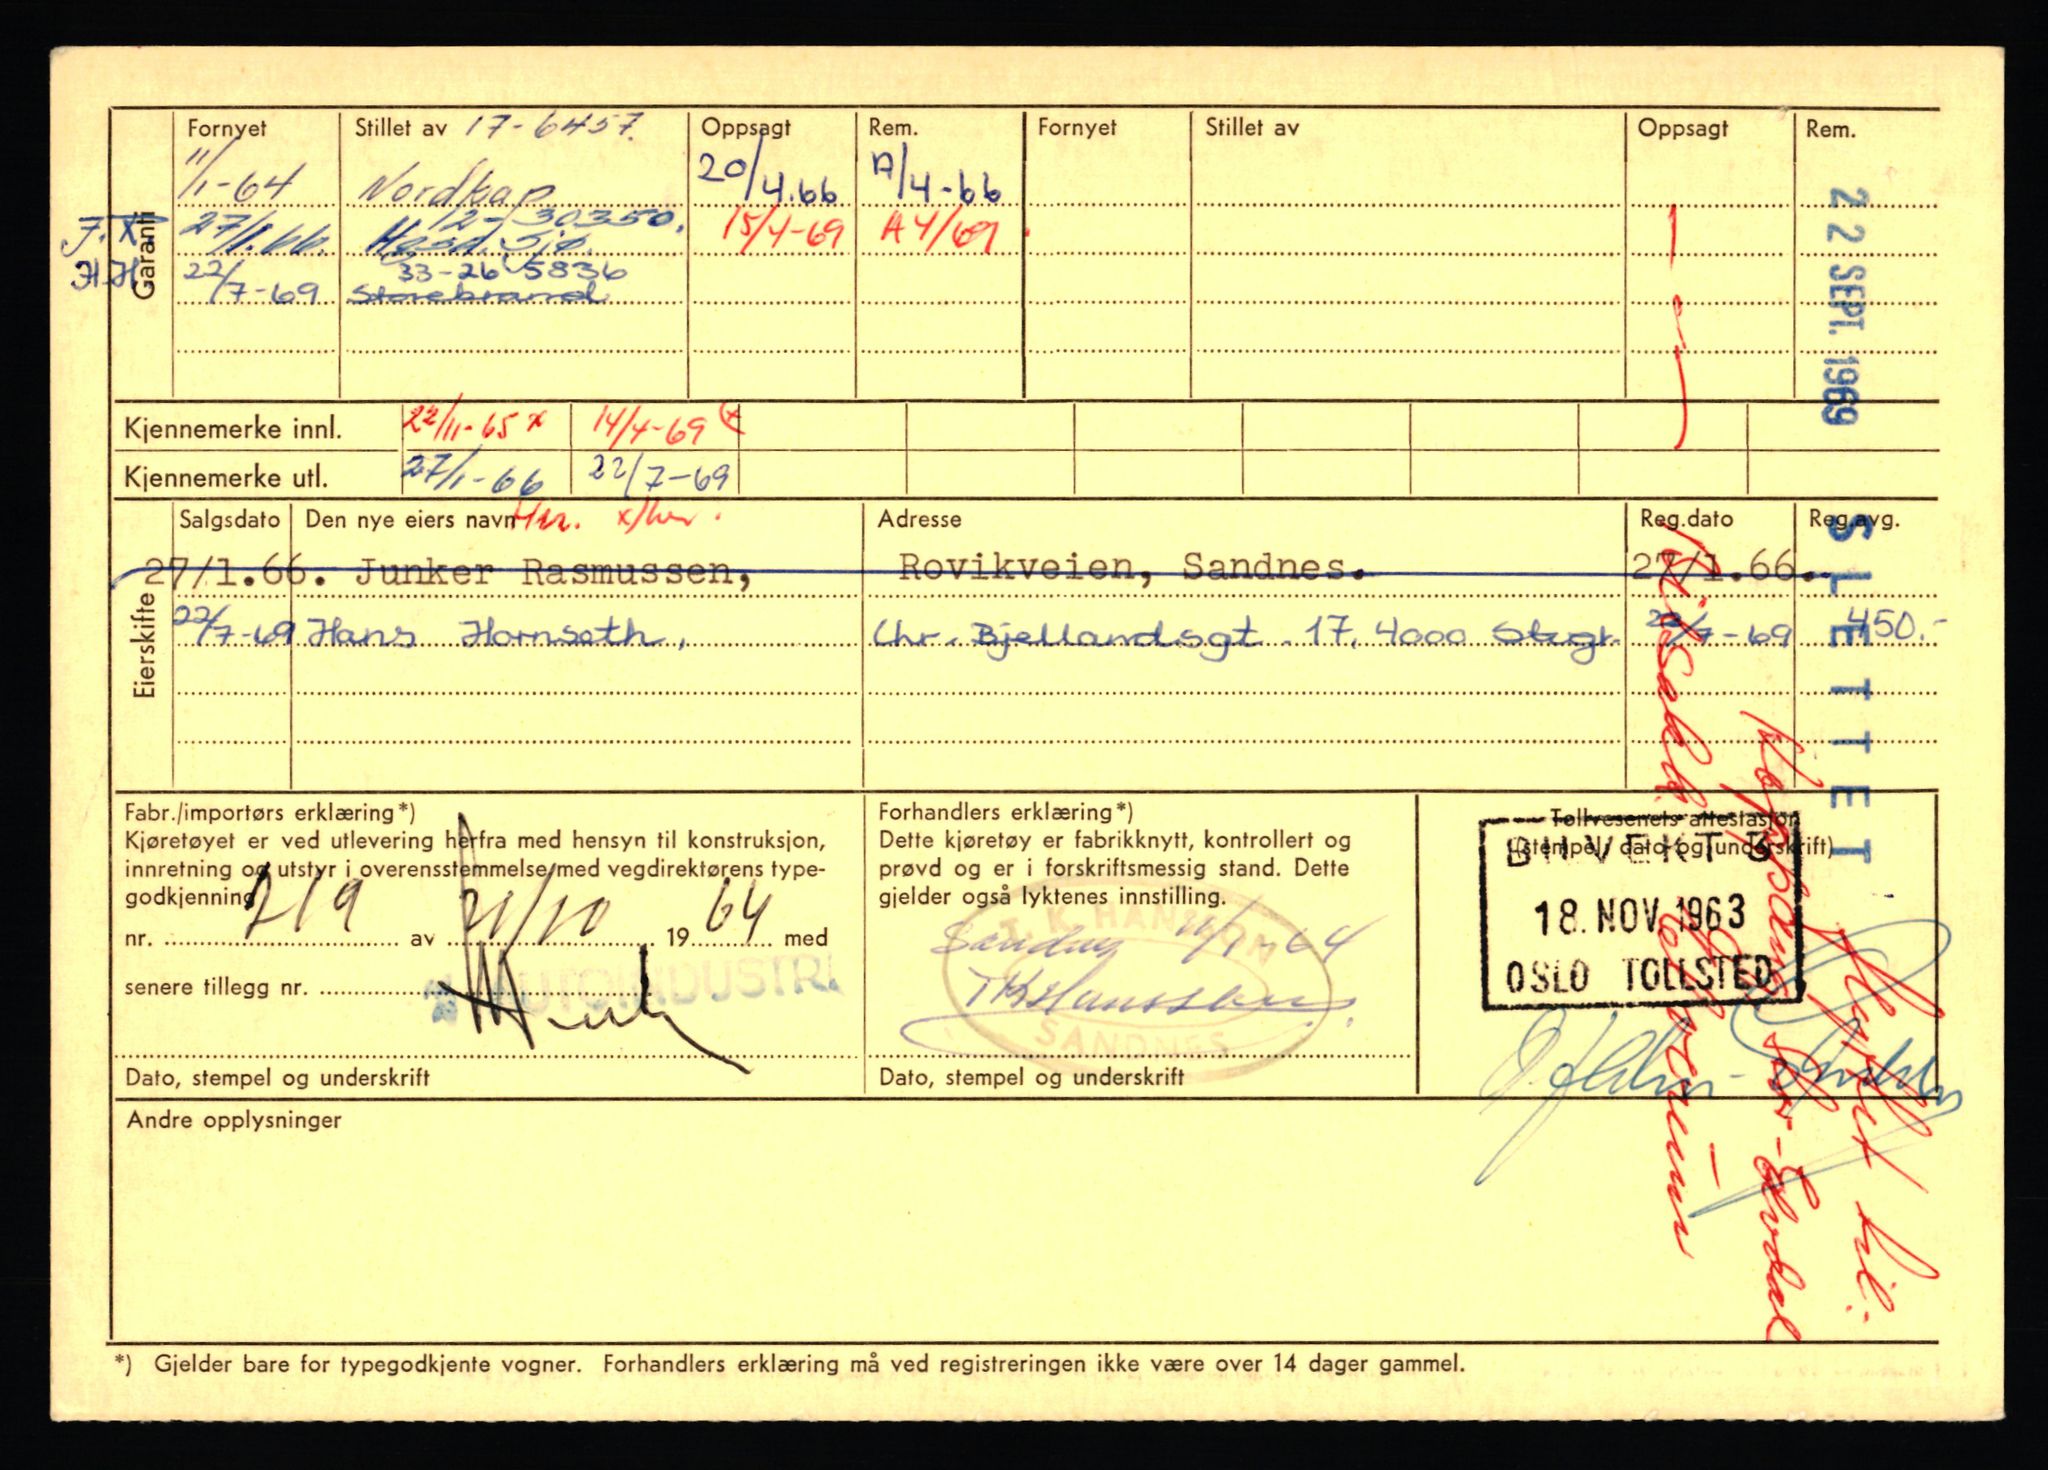 Fornyet Stillet av 17-6457. Oppsagt Rem. Fornyet Stillet av Oppsagt Rem.
11/1-64 Nordkap 20/4.66 A/4-66
J.K. 27/1.66. 12-30350. Hasd. Sjø. 15/4-69 A4/69
H.H 22/7-69 33-26 5836 Storebrand
Garanti
22 SEPT. 1969
Kjennemerke innl. 22/11-65 x 14/4-69 x
Kjennemerke utl. 27/1-66 22/7-69
Salgsdato Den nye eiers navn Adresse Reg.dato Reg.avg.
27/1.66. Junker Rasmussen, Rovikveien, Sandnes. 27/1.66.
22/7-69 Hans Hornseth, Chr. Bjellandsgt. 17, 4000 Stvgr. 22/7-69 450.-
Eierskifte
SLETTET
Flyttet til
Koppang Stor-Elvdal
Fabr./importørs erklæring*)
Kjøretøyet er ved utlevering herfra med hensyn til konstruksjon,
innretning og utstyr i overensstemmelse med vegdirektørens type-
godkjenning
nr. 219 av 21/10 1964 med
senere tillegg nr.
AUTOINDUSTRI
Dato, stempel og underskrift
Forhandlers erklæring*)
Dette kjøretøy er fabrikknytt, kontrollert og
prøvd og er i forskriftsmessig stand. Dette
gjelder også lyktenes innstilling.
T. K. HANSSON
Sandnes 11/1-64
TKHansson
SANDNES
Dato, stempel og underskrift
Tollvesenets attestasjon
(stempel, dato og underskrift)
BILVEKT 3
18. NOV. 1963
OSLO TOLLSTED
Andre opplysninger
*) Gjelder bare for typegodkjente vogner. Forhandlers erklæring må ved registreringen ikke være over 14 dager gammel.